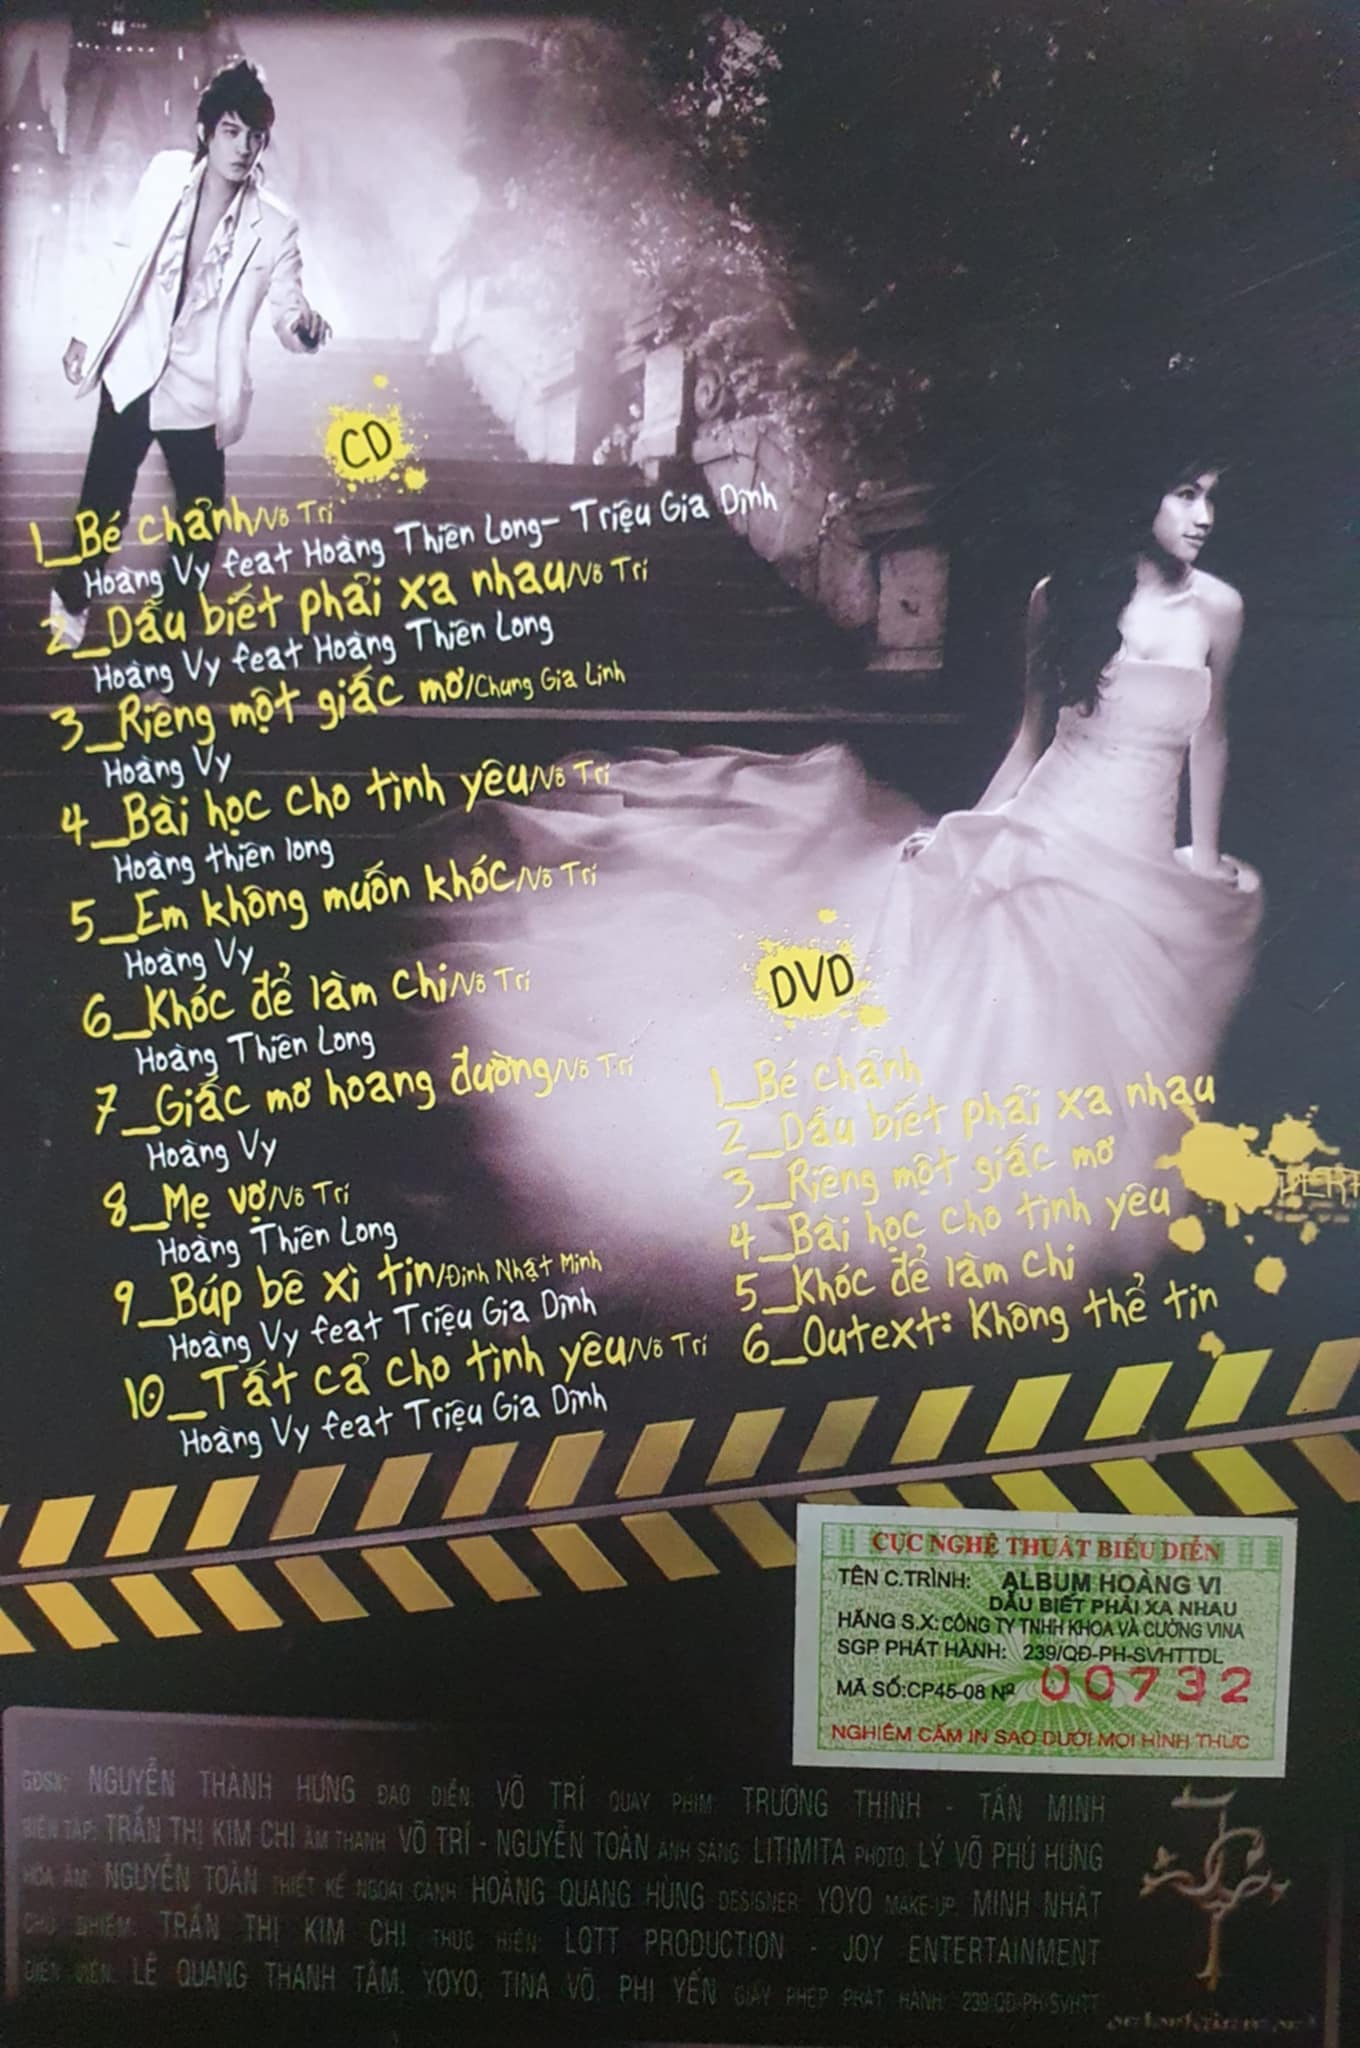 CD
1_Bé chảnh/Võ Trí
Hoàng Vy feat Hoàng Thiên Long- Triệu Gia Dinh
2_Dẫu biết phải xa nhau/Võ Trí
Hoàng Vy feat Hoàng Thiên Long
3_Riêng một giấc mơ/Chung Gia Linh
Hoàng Vy
4_Bài học cho tình yêu/Võ Trí
Hoàng thiên long
5_Em không muốn khóc/Võ Trí
Hoàng Vy
6_Khóc để làm chi/Võ Trí
Hoàng Thiên Long
7_Giấc mơ hoang đường/Võ Trí
Hoàng Vy
8_Mẹ vợ/Võ Trí
Hoàng Thiên Long
9_Búp bê xì tin/Đinh Nhật Minh
Hoàng Vy feat Triệu Gia Dinh
10_Tất cả cho tình yêu/Võ Trí
Hoàng Vy feat Triệu Gia Dinh
DVD
1_Bé chảnh
2_Dẫu biết phải xa nhau
3_Riêng một giấc mơ
4_Bài học cho tình yêu
5_Khóc để làm chi
6_Outext: Không thể tin
CỤC NGHỆ THUẬT BIỂU DIỄN
TÊN C.TRÌNH: ALBUM HOÀNG VI
DẪU BIẾT PHẢI XA NHAU
HÃNG S.X: CÔNG TY TNHH KHOA VÀ CƯỜNG VINA
SGP PHÁT HÀNH: 239/QĐ-PH-SVHTTDL
MÃ SỐ:CP45-08 Nº 00732
NGHIÊM CẤM IN SAO DƯỚI MỌI HÌNH THỨC
GĐSX: NGUYỄN THÀNH HƯNG ĐẠO DIỄN: VÕ TRÍ QUAY PHIM: TRƯƠNG THỊNH - TẤN MINH
BIÊN TẬP: TRẦN THỊ KIM CHI ÂM THANH: VÕ TRÍ - NGUYỄN TOÀN ÁNH SÁNG: LITIMITA PHOTO: LÝ VÕ PHÚ HƯNG
HÒA ÂM: NGUYỄN TOÀN THIẾT KẾ NGOẠI CẢNH: HOÀNG QUANG HÙNG DESIGNER: YOYO MAKE-UP: MINH NHẬT
CHỦ NHIỆM: TRẦN THỊ KIM CHI THỰC HIỆN: LOTT PRODUCTION - JOY ENTERTAINMENT
DIỄN VIÊN: LÊ QUANG THANH TÂM, YOYO, TINA VÕ, PHI YẾN GIẤY PHÉP PHÁT HÀNH: 239/QĐ-PH-SVHTT